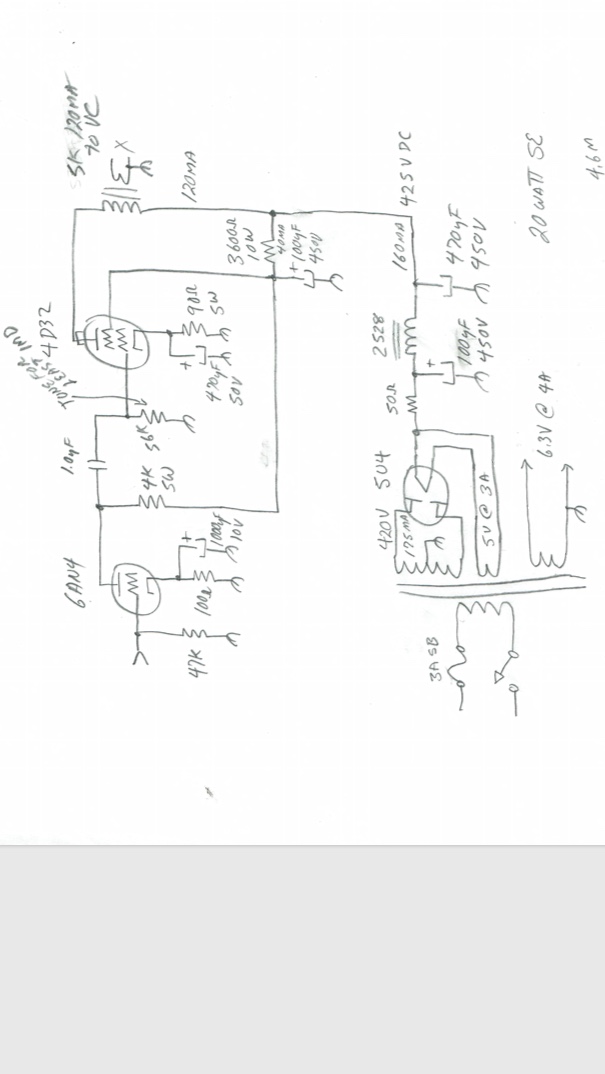 5K 120MA
70 VC
X
TUNE FOR
LEAST IMD
4D32
120MA
1.0µF
56K
90Ω
5W
+
470µF
50V
3600Ω
10W
40MA
+ 100µF
450V
6AN4
4K
5W
47K
100Ω
+
1000µF
10V
425 VDC
160MA
2528
50Ω
+
100µF
450V
470µF
450V
20 WATT SE
4.6 M
420V
5U4
175MA
5V @ 3A
6.3V @ 4A
3A SB